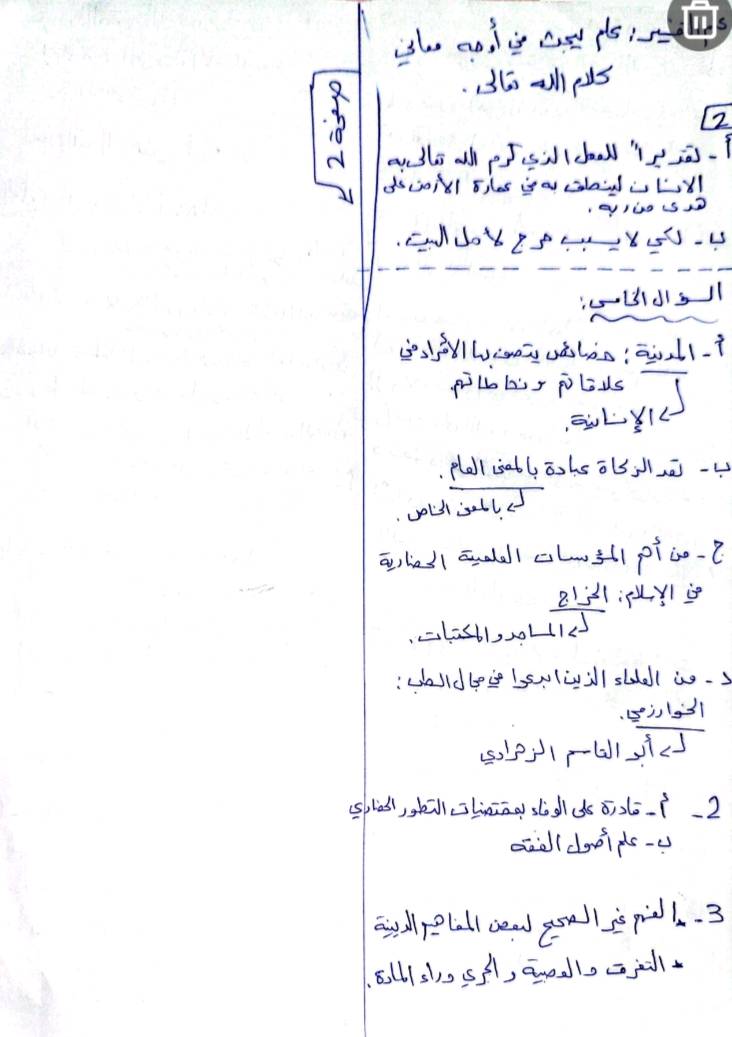 علم التفسير: علم يبحث في أوجه معاني
كلام الله تعالى.
صفحة 2
2
أ- تقديراً للعقل الذي كرم الله تعالى به
الإنسان لينطلق به في عمارة الأرض على
هدى من ربه.
ب- لكي لا يسبب حرج لأهل الميت.
السؤال الخامس:
أ- المدنية: خصائص يتصف بها الأفراد في
علاقاتهم ونشاطاتهم.
الإنسانية.
ب- تعد الزكاة عبادة بالمعنى العام.
بالمعنى الخاص.
ج- من أهم المؤسسات العلمية الحضارية
في الإسلام: الخراج
المساجد والمكتبات.
د- من العلماء الذين ابدعوا في مجال الطب:
الخوارزمي.
أبو القاسم الزهراوي
2- أ- قادرة على الوفاء بمقتضيات التطور الحضاري
ب- علم أصول الفقه
3- * الفهم غير الصحيح لبعض المفاهيم الدينية
* التفرقة والعصبية والجري وراء المادة.